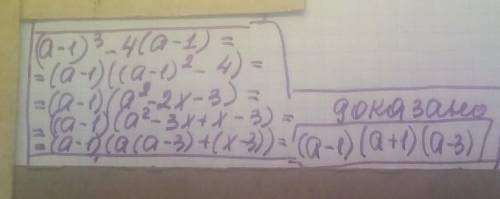 (a-1)³-4(a-1)=
=(a-1)((a-1)²-4)=
=(a-1)(a²-2x-3)=
=(a-1)(a²-3x+x-3)=
=(a-1)(a(a-3)+(x-3))=
доказано
(a-1)(a+1)(a-3)